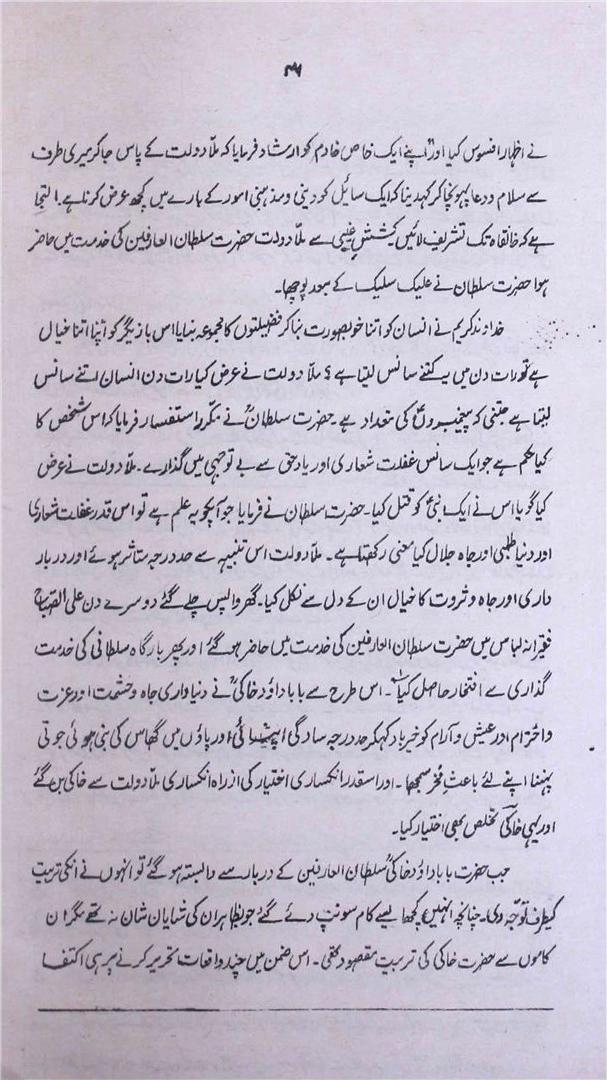 نے اظہار افسوس کیا اور اپنے ایک خاص خادم کو ارشاد فرمایا کہ ملّا دولت کے پاس جا کر میری طرف
سے سلام و دعا پہونچا کر کہدینا کہ ایک سائیل کو دینی و مذہبی امور کے بارے میں کچھ عرض کرنا ہے۔ التجا
ہے کہ خانقاہ تک تشریف لائیں کششِ غیبی سے ملّا دولت حضرت سلطان العارفین کی خدمت میں حاضر
ہوا حضرت سلطان نے علیک سلیک کے بعد پوچھا۔
خداوند کریم نے انسان کو اتنا خوبصورت بنا کر فضیلتوں کا مجموعہ بنایا اس بازیگر کو اتنا خیال
ہے تو رات دن میں یہ کتنے سانس لیتا ہے؟ ملّا دولت نے عرض کیا رات دن انسان اتنے سانس
لیتا ہے جتنی کہ پیغمبروںؑ کی تعداد ہے۔ حضرت سلطانؒ نے مکرّر استفسار فرمایا کہ اس شخص کا
کیا حکم ہے جو ایک سانس غفلت شعاری اور یاد حق سے بے توجہی میں گذارے۔ ملّا دولت نے عرض
کیا گویا اس نے ایک نبیؑ کو قتل کیا۔ حضرت سلطان نے فرمایا جو آپکو یہ علم ہے تو اس قدر غفلت شعاری
اور دنیا طلبی اور جاہ جلال کیا معنی رکھتا ہے۔ ملّا دولت اس تنبیہہ سے حد درجہ متاثر ہوئے اور دربار
داری اور جاہ و ثروت کا خیال ان کے دل سے نکل گیا۔ گھر واپس چلے گئے دوسرے دن علی الصّباح
فقیرانہ لباس میں حضرت سلطان العارفین کی خدمت میں حاضر ہو گئے اور پھر بارگاہ سلطانی کی خدمت
گذاری سے افتخار حاصل کیا۔ اس طرح سے بابا داؤد خاکیؒ نے دنیاداری جاہ و حشمت اور عزت
و احترام اور عیش و آرام کو خیرباد کہکر حد درجہ سادگی اور پاؤں میں گھاس کی بنی ہوئی جوتی
پہننا اپنے لئے باعثِ فخر سمجھا۔ اور اسقدر انکساری اختیار کی از راہ انکساری ملّا دولت سے خاکی بن گئے
اور یہی خاکیؒ تخلص بھی اختیار کیا۔
جب حضرت بابا داؤد خاکیؒ سلطان العارفین کے دربار سے وابستہ ہو گئے تو انہوں نے انکی تربیت
کیطرف توجّہ دی۔ چنانچہ انہیں کچھ ایسے کام سونپ دئے گئے جو بظاہر ان کی شایان شان نہ تھے مگر ان
کاموں سے حضرت خاکی کی تربیت مقصود تھی۔ اس ضمن میں چند واقعات تحریر کرنے پر ہی اکتفا